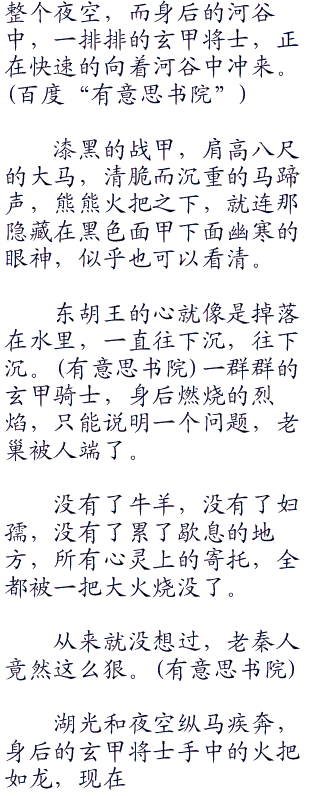 整个夜空，而身后的河谷
中，一排排的玄甲将士，正
在快速的向着河谷中冲来。
(百度“有意思书院”)
漆黑的战甲，肩高八尺
的大马，清脆而沉重的马蹄
声，熊熊火把之下，就连那
隐藏在黑色面甲下面幽寒的
眼神，似乎也可以看清。
东胡王的心就像是掉落
在水里，一直往下沉，往下
沉。(有意思书院)一群群的
玄甲骑士，身后燃烧的烈
焰，只能说明一个问题，老
巢被人端了。
没有了牛羊，没有了妇
孺，没有了累了歇息的地
方，所有心灵上的寄托，全
都被一把大火烧没了。
从来就没想过，老秦人
竟然这么狠。(有意思书院)
湖光和夜空纵马疾奔，
身后的玄甲将士手中的火把
如龙，现在